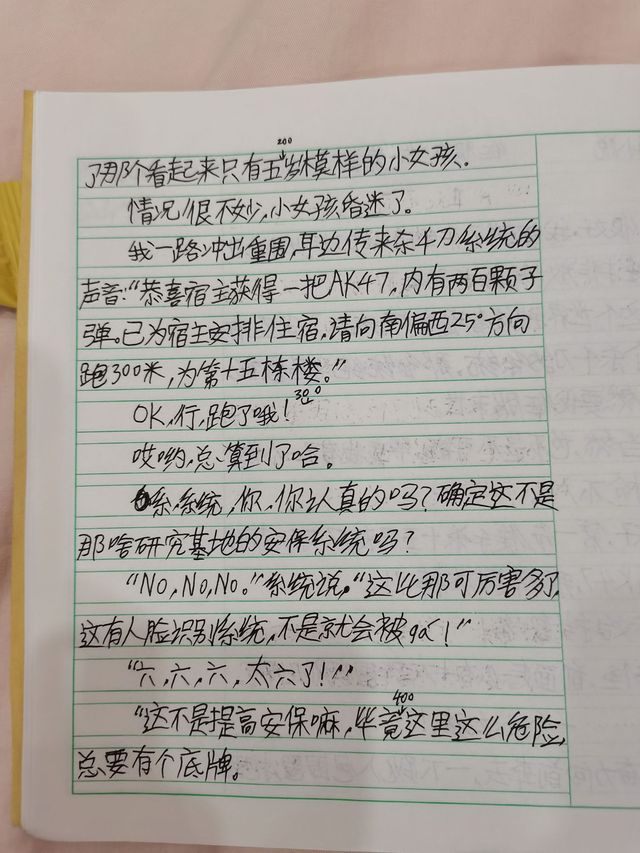 200
了那个看起来只有五岁模样的小女孩.
情况很不妙,小女孩昏迷了。
我一路冲出重围,耳边传来杀千刀系统的
声音:“恭喜宿主获得一把AK47,内有两百颗子
弹。已为宿主安排住宿,请向南偏西25°方向
跑300米,为第十五栋楼。”
300
OK,行,跑了哦!
哎哟,总算到了哈。
系,系统,你,你认真的吗?确定这不是
那啥研究基地的安保系统吗?
“No,No,No.”系统说。“这比那可厉害多了,
这有人脸识别系统,不是就会被gǎ!”
“六,六,六,太六了!”
400
“这不是提高安保嘛,毕竟这里这么危险,
总要有个底牌。